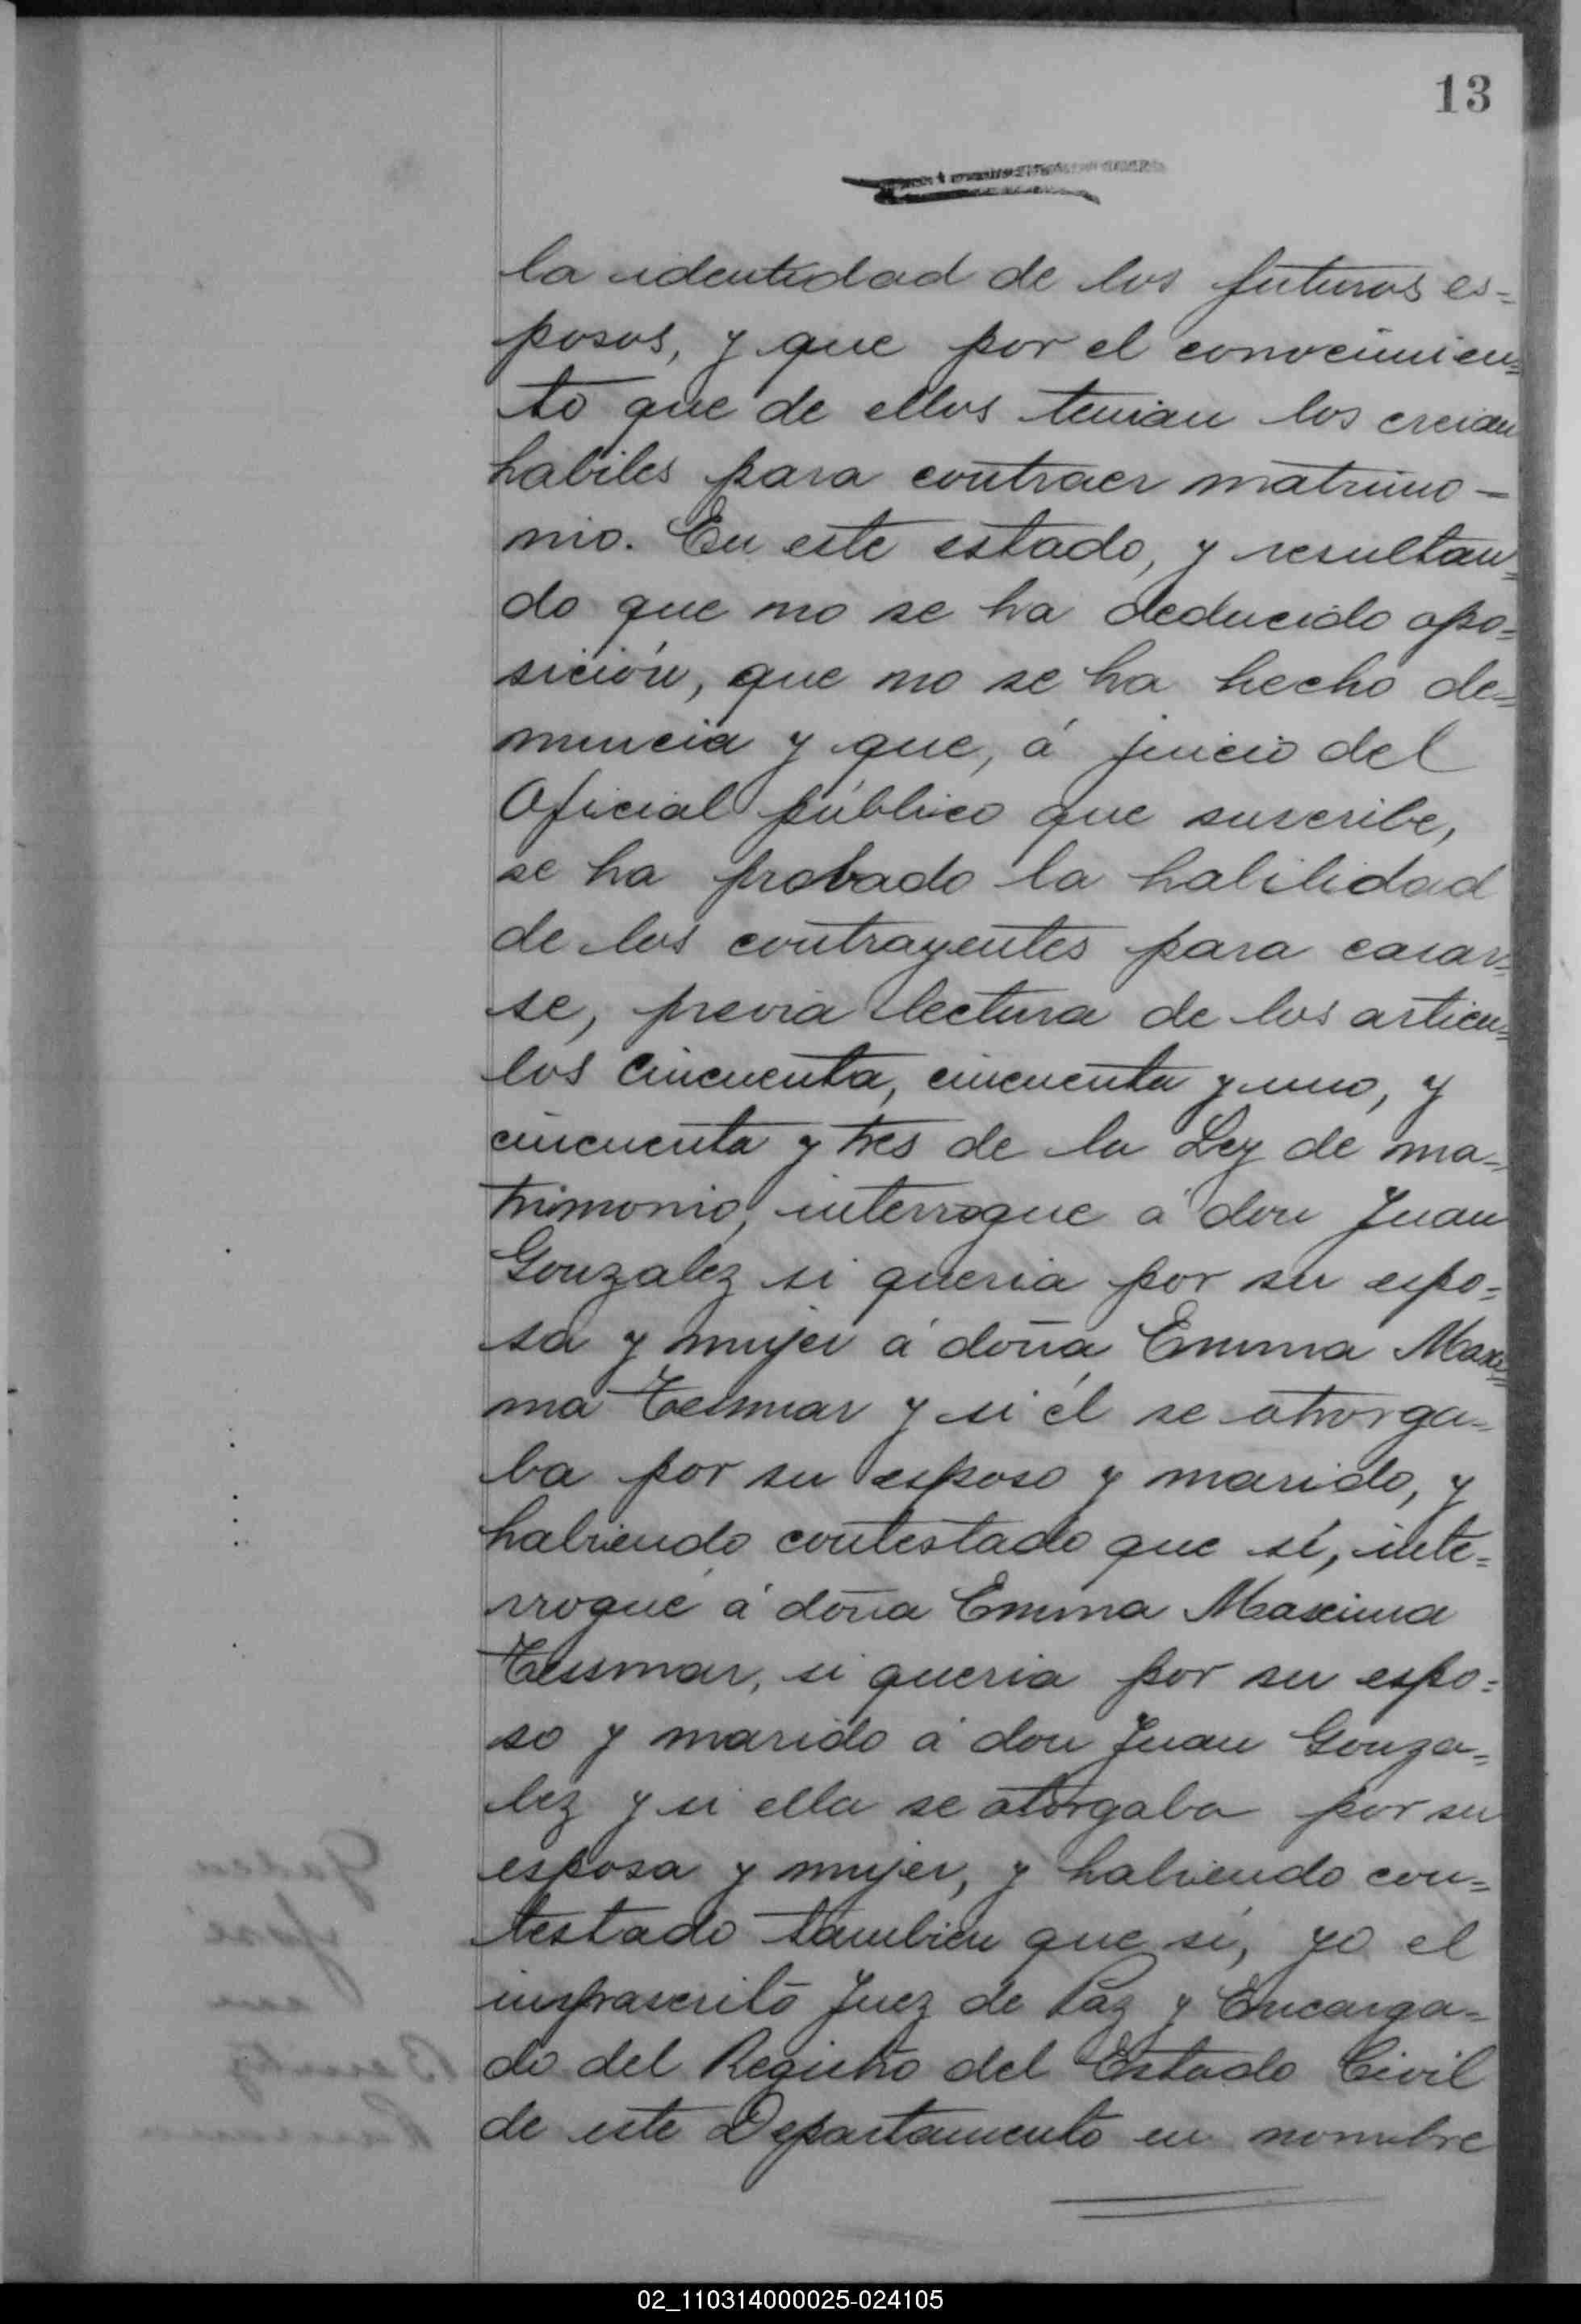 13
la identidad de los futuros es=
posos, y que por el conocimien=
to que de ellos tenian los creian
habiles para contraer matrimo-
nio. En este estado, y resultan=
do que no se ha deducido opo=
sición, que no se ha hecho de=
nuncia y que, á juicio del
Oficial público que suscribe,
se ha probado la habilidad
de los contrayentes para casar=
se, previa lectura de los articu=
los cincuenta, cincuenta y uno, y
cincuenta y tres de la Ley de ma=
trimonio, interrogue á don Juan
Gonzalez si queria por su espo=
sa y mujer á doña Emma Maxi=
ma Tessmar y si él se otorga=
ba por su esposo y marido, y
habiendo contestado que sí, inte=
rrogué á doña Emma Maxima
Tessmar, si queria por su espo=
so y marido á don Juan Gonza=
lez y si ella se otorgaba por su
esposa y mujer, y habiendo con=
testado tambien que sí, yo el
infrascrito Juez de Paz y Encarga=
do del Registro del Estado Civil
de este Departamento en nombre
02_110314000025-024105